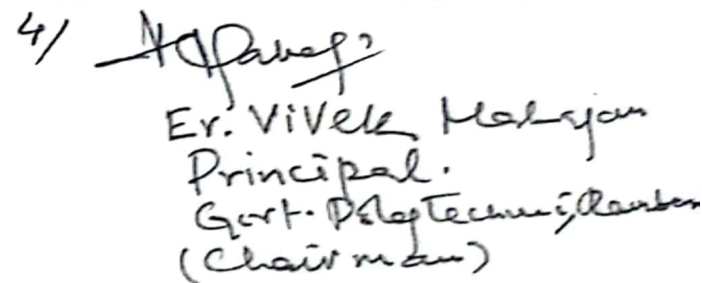 4/
Er. Vivek Mahajan
Principal.
Govt. Polytechnic, Ramban
(Chairman)